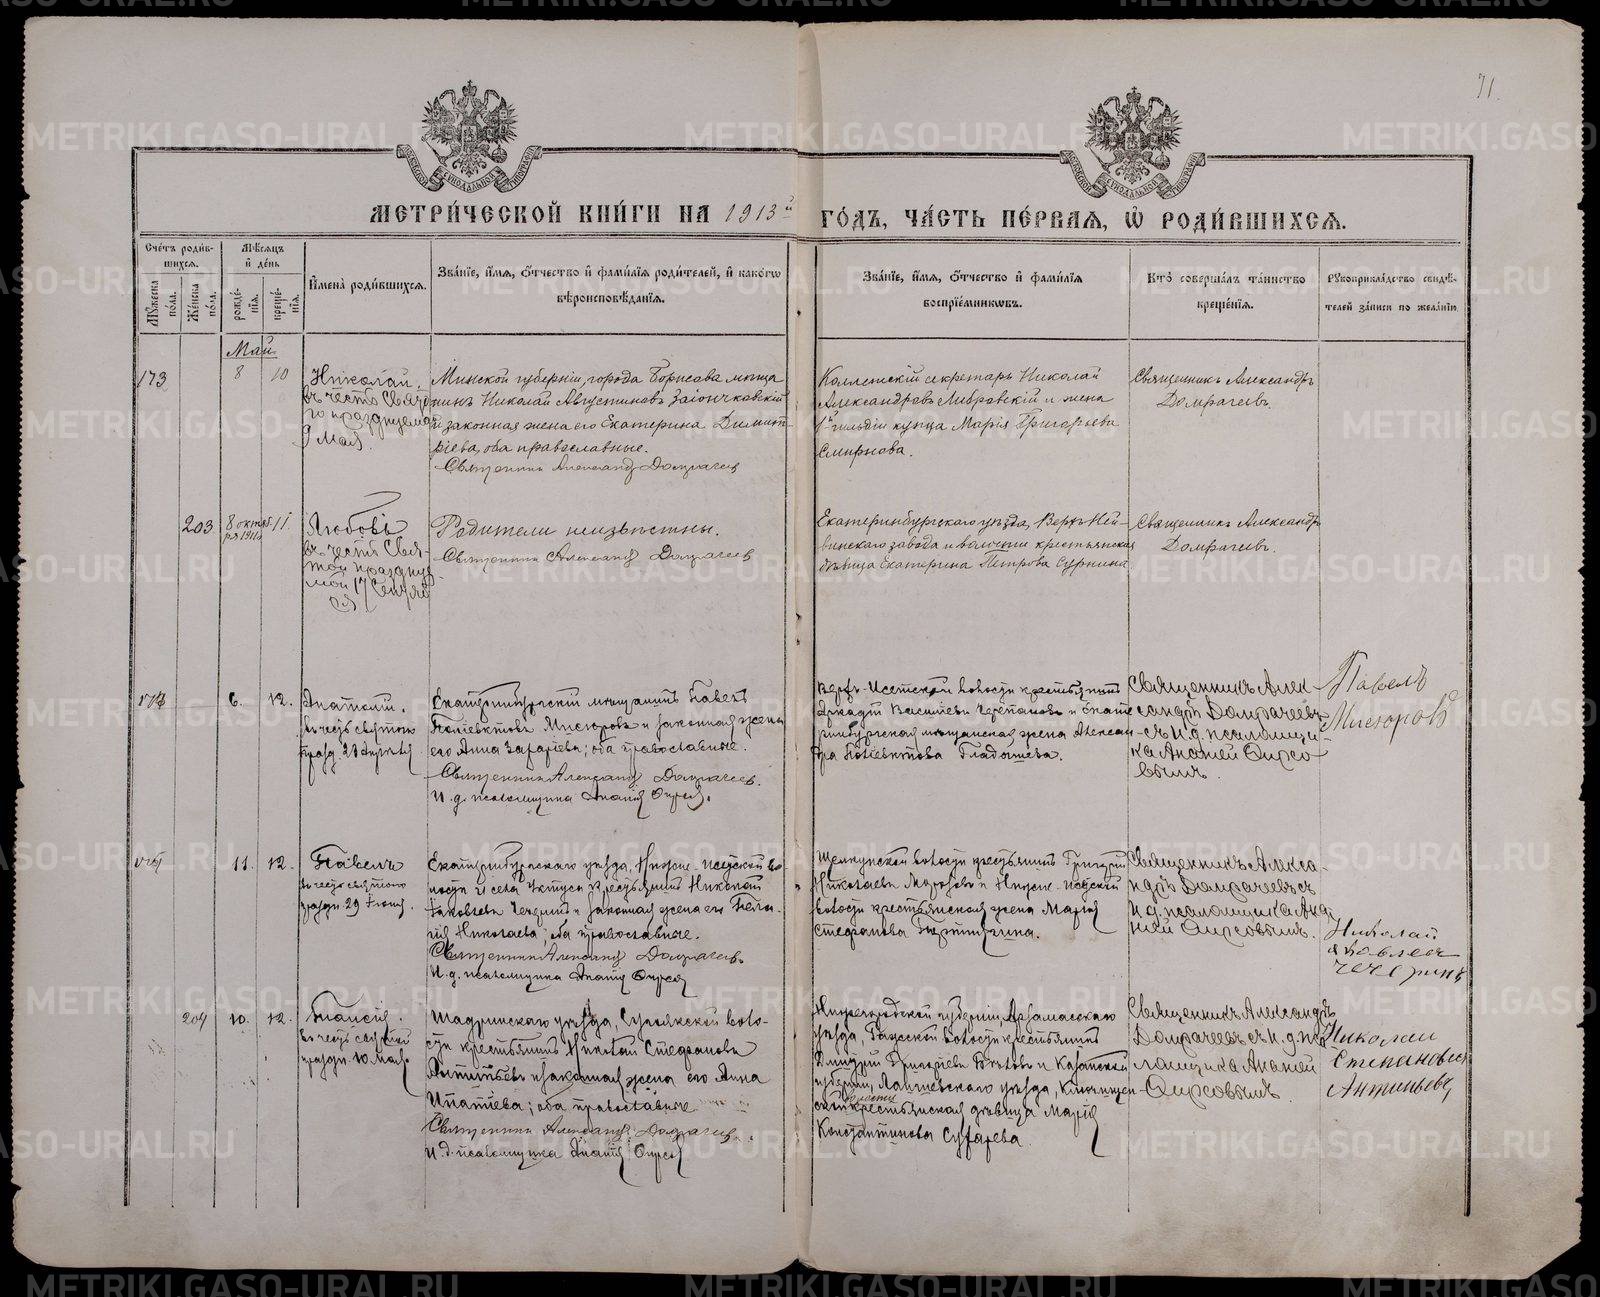 71.
МЕТРИ́ЧЕСКОЙ КНИ́ГИ НА 1913й ГО́ДЪ, ЧА́СТЬ ПЕ́РВАЯ, Ѡ҆ РОДИ́ВШИХСЯ.
Сче́тъ роди́вшихся.
Му́жеска по́ла.
Же́нска по́ла.
Мѣ́сяцъ и҆ де́нь
рожде́нїя.
креще́нїя.
И҆мена̀ роди́вшихся.
Зва́нїе, и҆́мя, ѻ҆́тчество и҆ фами́лїя роди́телей, и҆ како́гѡ
вѣроисповѣ́данїя.
Зва́нїе, и҆́мя, ѻ҆́тчество и҆ фами́лїя
воспрїе́мниковъ.
Кто̀ соверша́лъ та́инство
креще́нїя.
Рукоприкла́дство свидѣ́-
телей за́писи по жела́нїю.
Май
173
8
10
Николай.
въ честь Свято
го празднуема
9 Мая.
Минской губерніи, города Борисова мѣща
нинъ Николай Августиновъ Заіончковскій
и законная жена его Екатерина Димит-
ріева, оба православные.
Священникъ Александръ Домрачевъ
Коллежскій секретарь Николай
Александровъ
и жена
1й гильдіи купца Марія Григорьева
Смирнова.
Священникъ Александръ
Домрачевъ.
203
8 октяб
ря 1911
11.
Любовь
въ честь Свя-
той праздну
мой 17 Сентяб
ря
Родители неизвѣстны.
Священникъ Александръ Домрачевъ
Екатеринбургскаго уѣзда, Верхъ-Ней-
винскаго завода и волости крестьянская
дѣвица Екатерина Петрова Сурнина
Священникъ Александръ
Домрачевъ.
174
6.
12.
Анатолій.
въ честь святого
празд. 23 Апрѣля
Екатеринбургскій мѣщанинъ Павелъ
Поліевктовъ Мисюровъ и законная жена
его Анна Захаріева; оба православные.
Священникъ Александръ Домрачевъ.
И. д. псаломщика Ананій Фирсовъ.
Верхъ-Исетской волости крестьянинъ
Аркадій Васильевъ Черепановъ и Екате
ринбургская мѣщанская жена Алексан
дра Поліевктова Гладышева.
Священникъ Алек
сандръ Домрачевъ
съ и. д. псаломщи-
ка Ананій Фирсо
вымъ.
Павелъ
Мисюровъ
175
11.
12.
Павелъ
въ честь святого
праздн. 29 Іюня.
Екатеринбургскаго уѣзда, Нижне-Исетской во
лости и села Уктуса крестьянинъ Николай
Іаковлевъ Чечулинъ и законная жена его Пела-
гія Николаева; оба православные.
Священникъ Александръ Домрачевъ
И. д. псаломщика Ананій Фирсовъ
Щелкунской волости крестьянинъ Григорій
Николаевъ Морозовъ и Нижне-Исетской
волости крестьянская жена Марія
Стефанова
Священникъ Алекса-
ндръ Домрачевъ съ
и. д. псаломщика Ана
ніей Фирсовымъ.
Николай
Яковлев
204
10.
12.
Таисія.
въ честь святой
праздн. 10 Мая
Шадринскаго уѣзда, Сугоякской воло-
сти крестьянинъ Николай Стефановъ
Антипьевъ и законная жена его Анна
Ипатіева; оба православные
Священникъ Александръ Домрачевъ.
И. д. псаломщика Ананій Фирсовъ
Нижегородской губерніи, Арзамасскаго
уѣзда,
волости крестьянинъ
Димитрій Григоріевъ
и Казанской
губерніи, Лаишевскаго уѣзда,
волости
крестьянская дѣвица Марія
Константинова Сухарева.
Священникъ Александръ
Домрачевъ съ и. д. пса
ломщика Ананій
Фирсовымъ.
Николай
Степанович
Антипьевъ
METRIKI.GASO-URAL.RU